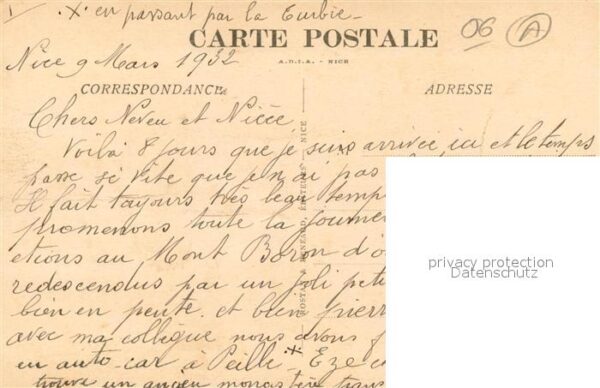 x en passant par la Turbie -
06 A
CARTE POSTALE
A.D.I.A. - NICE
Nice 9 Mars 1932
CORRESPONDANCE
ADRESSE
Chers Neveu et Nièce
Voilà 8 jours que je suis arrivée ici et le temps
passe si vite que je n'ai pas
Il fait toujours très beau temp
promenons toute la journé
etions au Mont Boron d'o
redescendus par un joli peti
bien en pente et bien pierr
avec ma collègue nous avons f
en auto-car à Peille x Eze
trouve un ancien monastère trans
EDITEURS - NICE -
privacy protection
Datenschutz